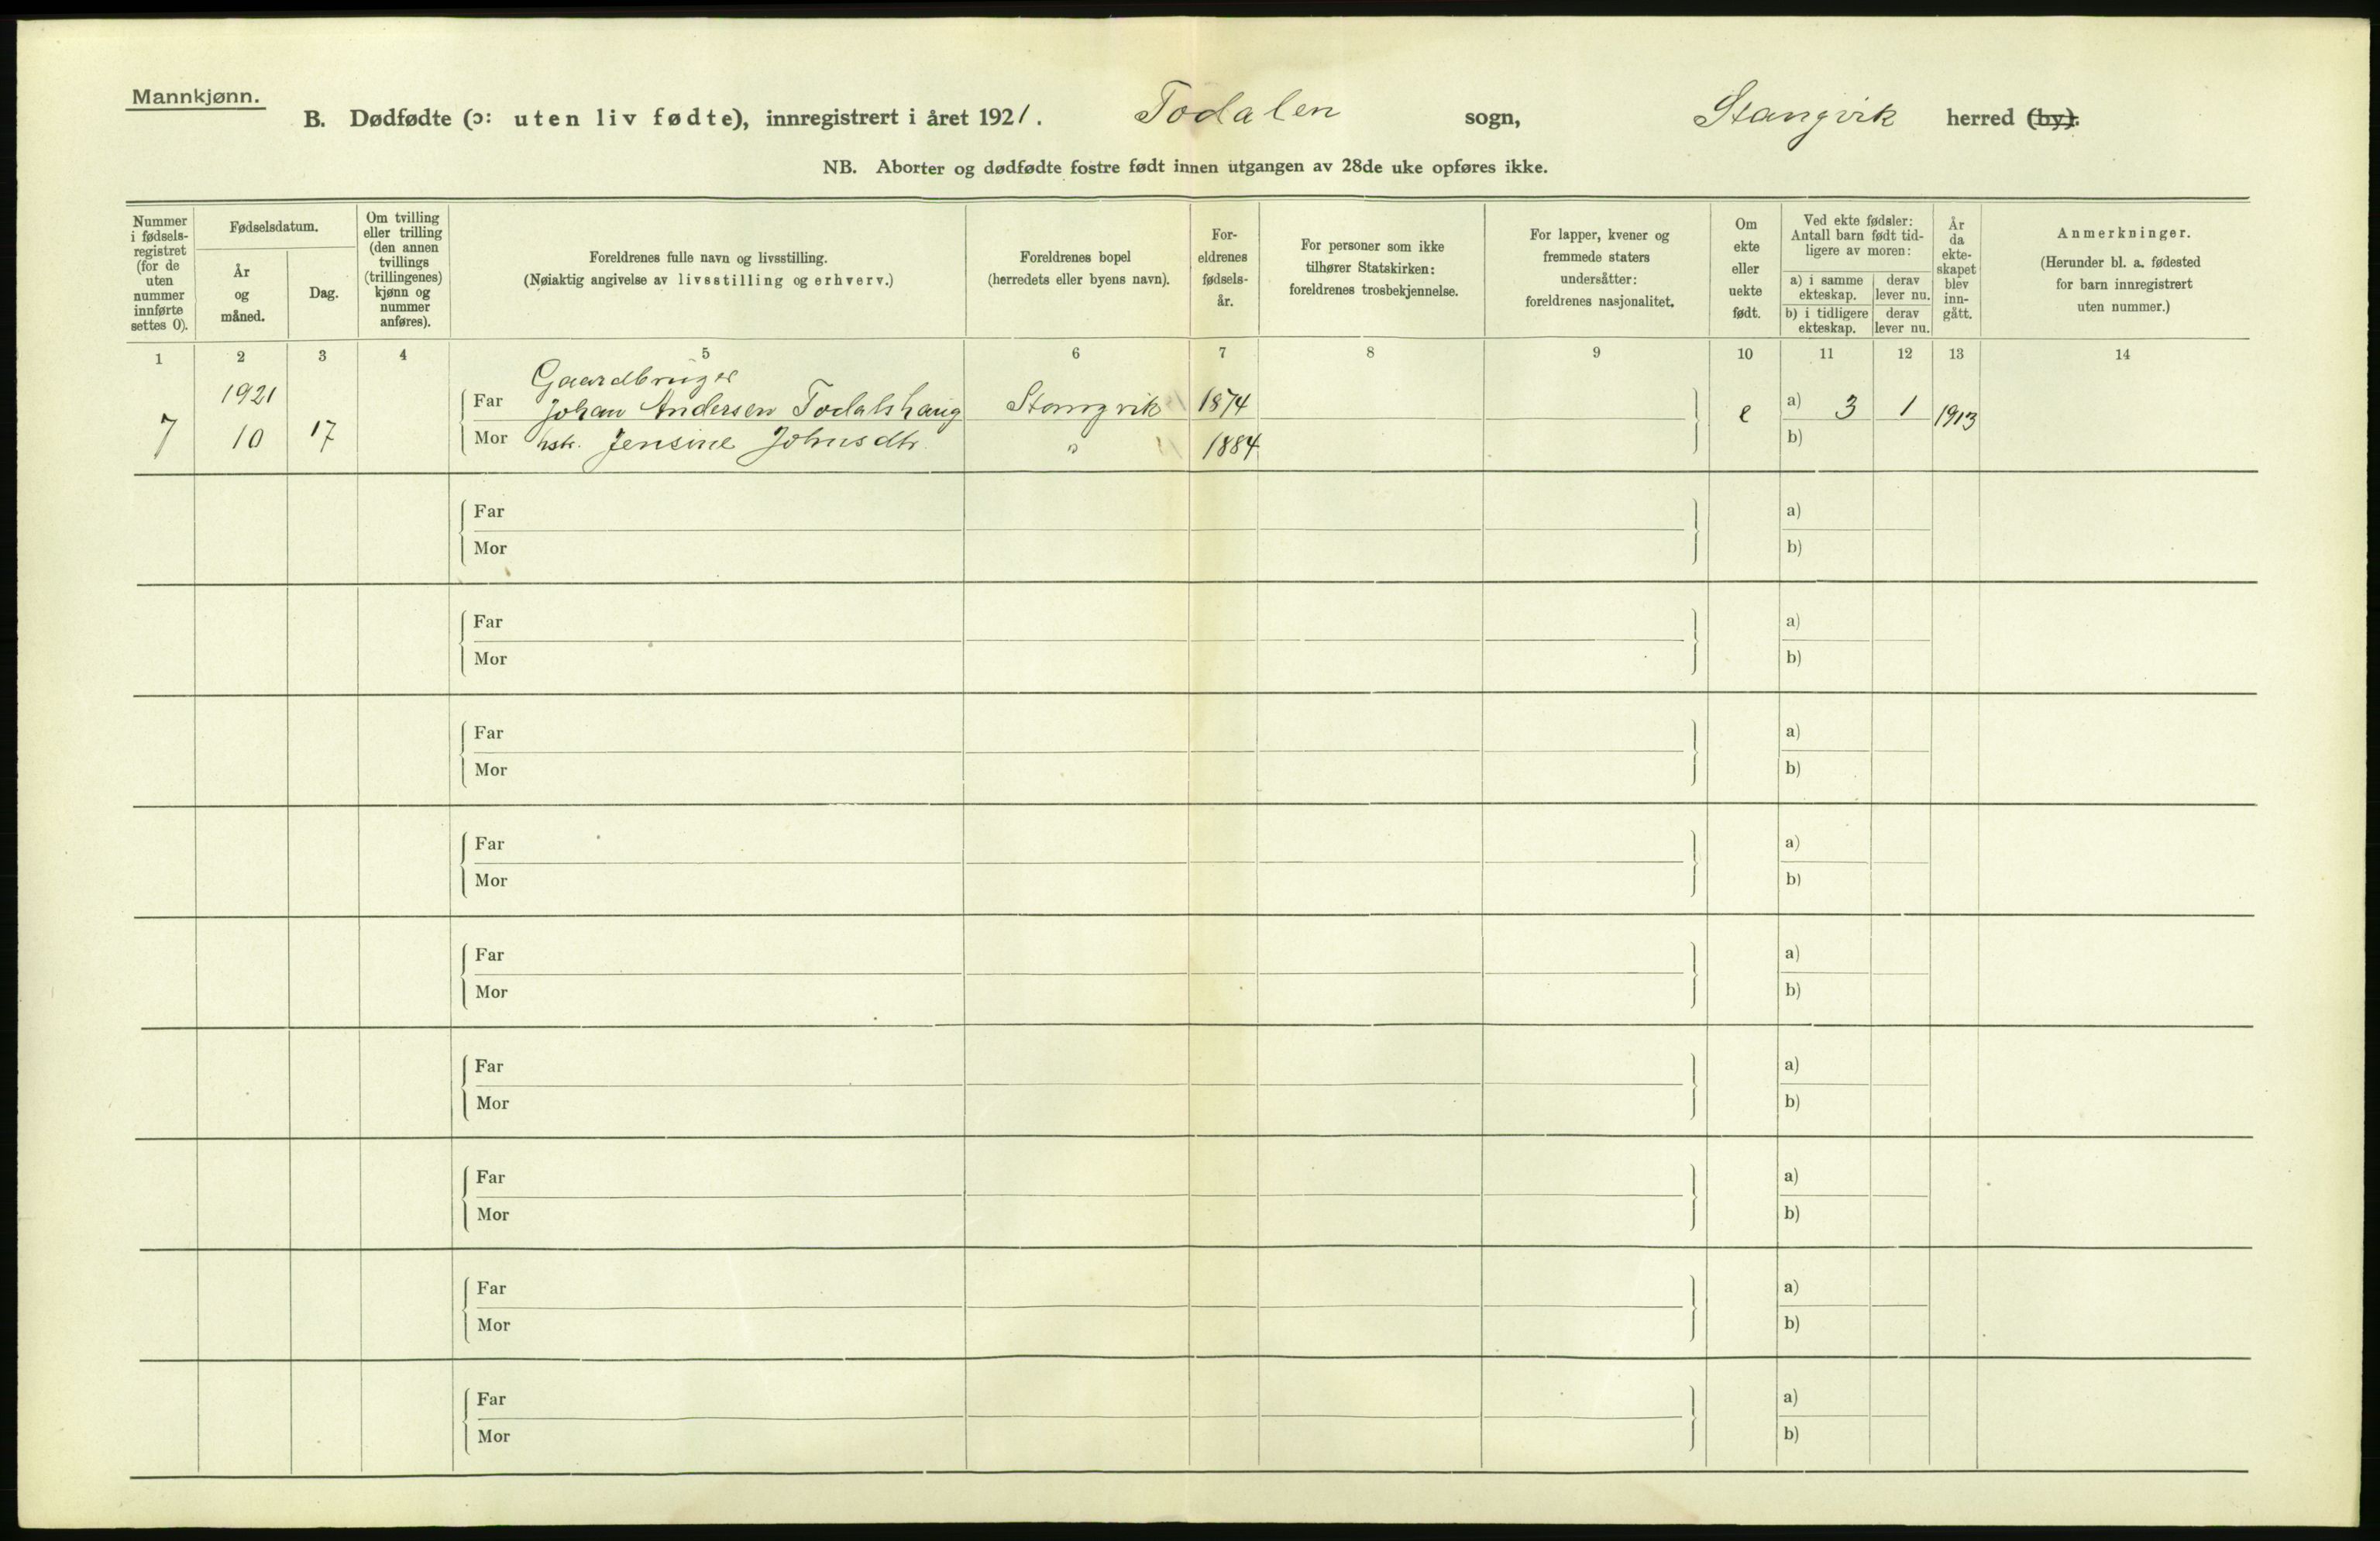 Mannkjønn.
B. Dødfødte (ɔ: uten liv fødte), innregistrert i året 1921. Todalen sogn, Stangvik herred (by).
NB. Aborter og dødfødte fostre født innen utgangen av 28de uke opføres ikke.
Nummer
i fødsels-
registret
(for de
uten
nummer
innførte
settes 0).
Fødselsdatum.
År
og
måned.
Dag.
Om tvilling
eller trilling
(den annen
tvillings
(trillingenes)
kjønn og
nummer
anføres).
Foreldrenes fulle navn og livsstilling.
(Nøiaktig angivelse av livsstilling og erhverv.)
Foreldrenes bopel
(herredets eller byens navn).
For-
eldrenes
fødsels-
år.
For personer som ikke
tilhører Statskirken:
foreldrenes trosbekjennelse.
For lapper, kvener og
fremmede staters
undersåtter:
foreldrenes nasjonalitet.
Om
ekte
eller
uekte
født.
Ved ekte fødsler:
Antall barn født tid-
ligere av moren:
a) i samme
ekteskap.
derav
lever nu.
b) i tidligere
ekteskap.
derav
lever nu.
År
da
ekte-
skapet
blev
inn-
gått.
Anmerkninger.
(Herunder bl. a. fødested
for barn innregistrert
uten nummer.)
1 2 3 4 5 6 7 8 9 10 11 12 13 14
Gaardbruger
1921 Far Johan Andersen Todalshaug Stangvik 1874 e a) 3 1 1913
7 10 17 Mor hstr. Jensine Johnsdtr. " 1884 b)
Far a)
Mor b)
Far a)
Mor b)
Far a)
Mor b)
Far a)
Mor b)
Far a)
Mor b)
Far a)
Mor b)
Far a)
Mor b)
Far a)
Mor b)
Far a)
Mor b)